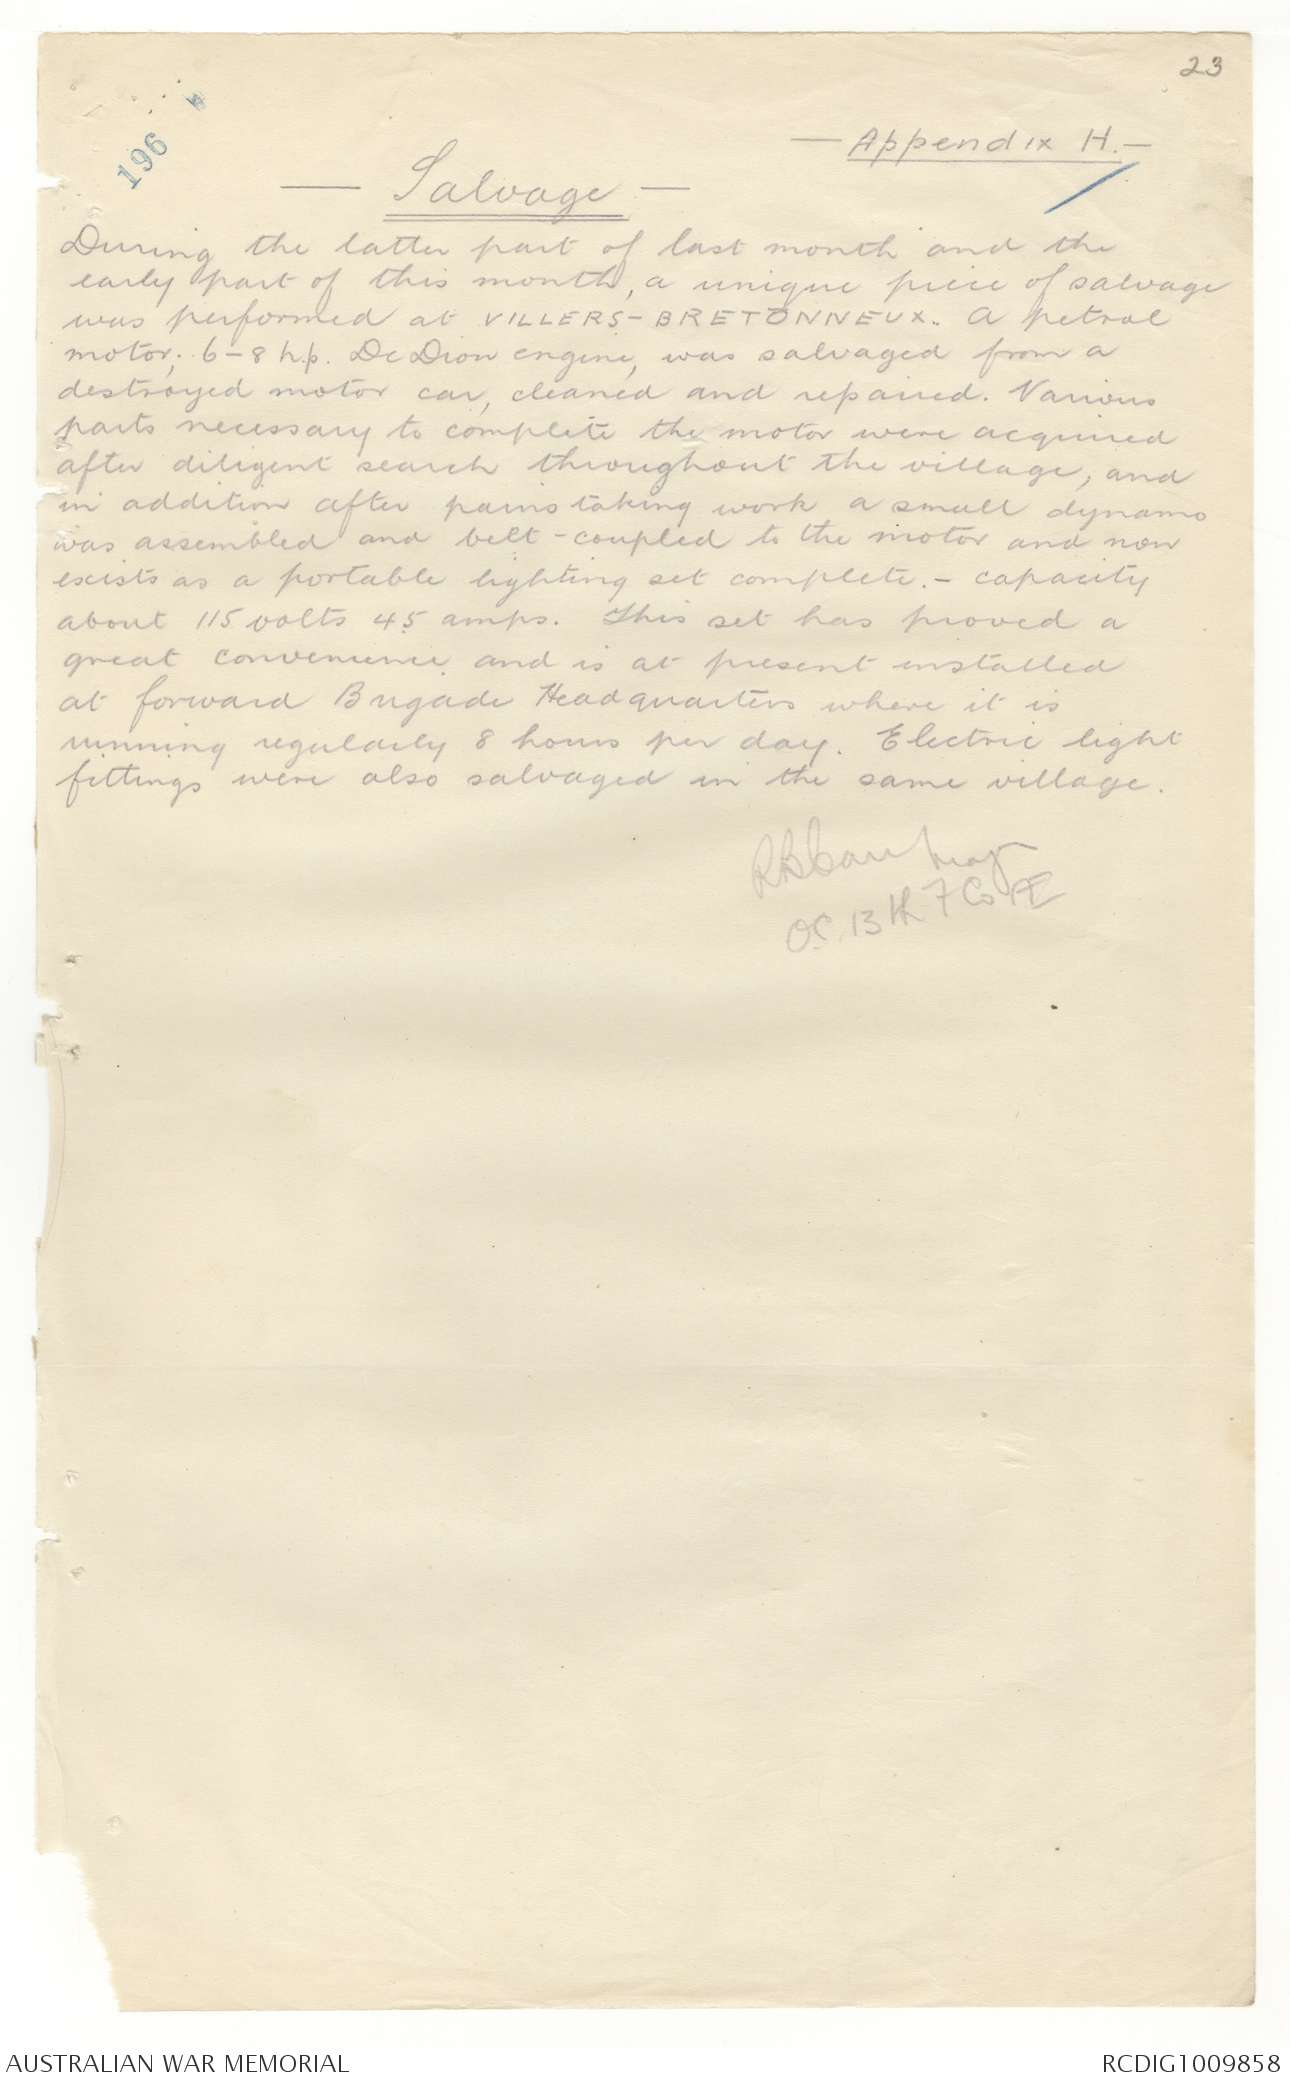 23
196
— Appendix H. —
— Salvage —
During the latter part of last month and the
early part of this month, a unique piece of salvage
was performed at VILLERS-BRETONNEUX. A petrol
motor, 6-8 h.p. De Dion engine, was salvaged from a
destroyed motor car, cleaned and repaired. Various
parts necessary to complete the motor were acquired
after diligent search throughout the village, and
in addition after painstaking work a small dynamo
was assembled and belt-coupled to the motor and now
exists as a portable lighting set complete. - capacity
about 115 volts 45 amps. This set has proved a
great convenience and is at present installed
at forward Brigade Headquarters where it is
running regularly 8 hours per day. Electric light
fittings were also salvaged in the same village.
Major
OC. 13th F Co AE
AUSTRALIAN WAR MEMORIAL
RCDIG1009858